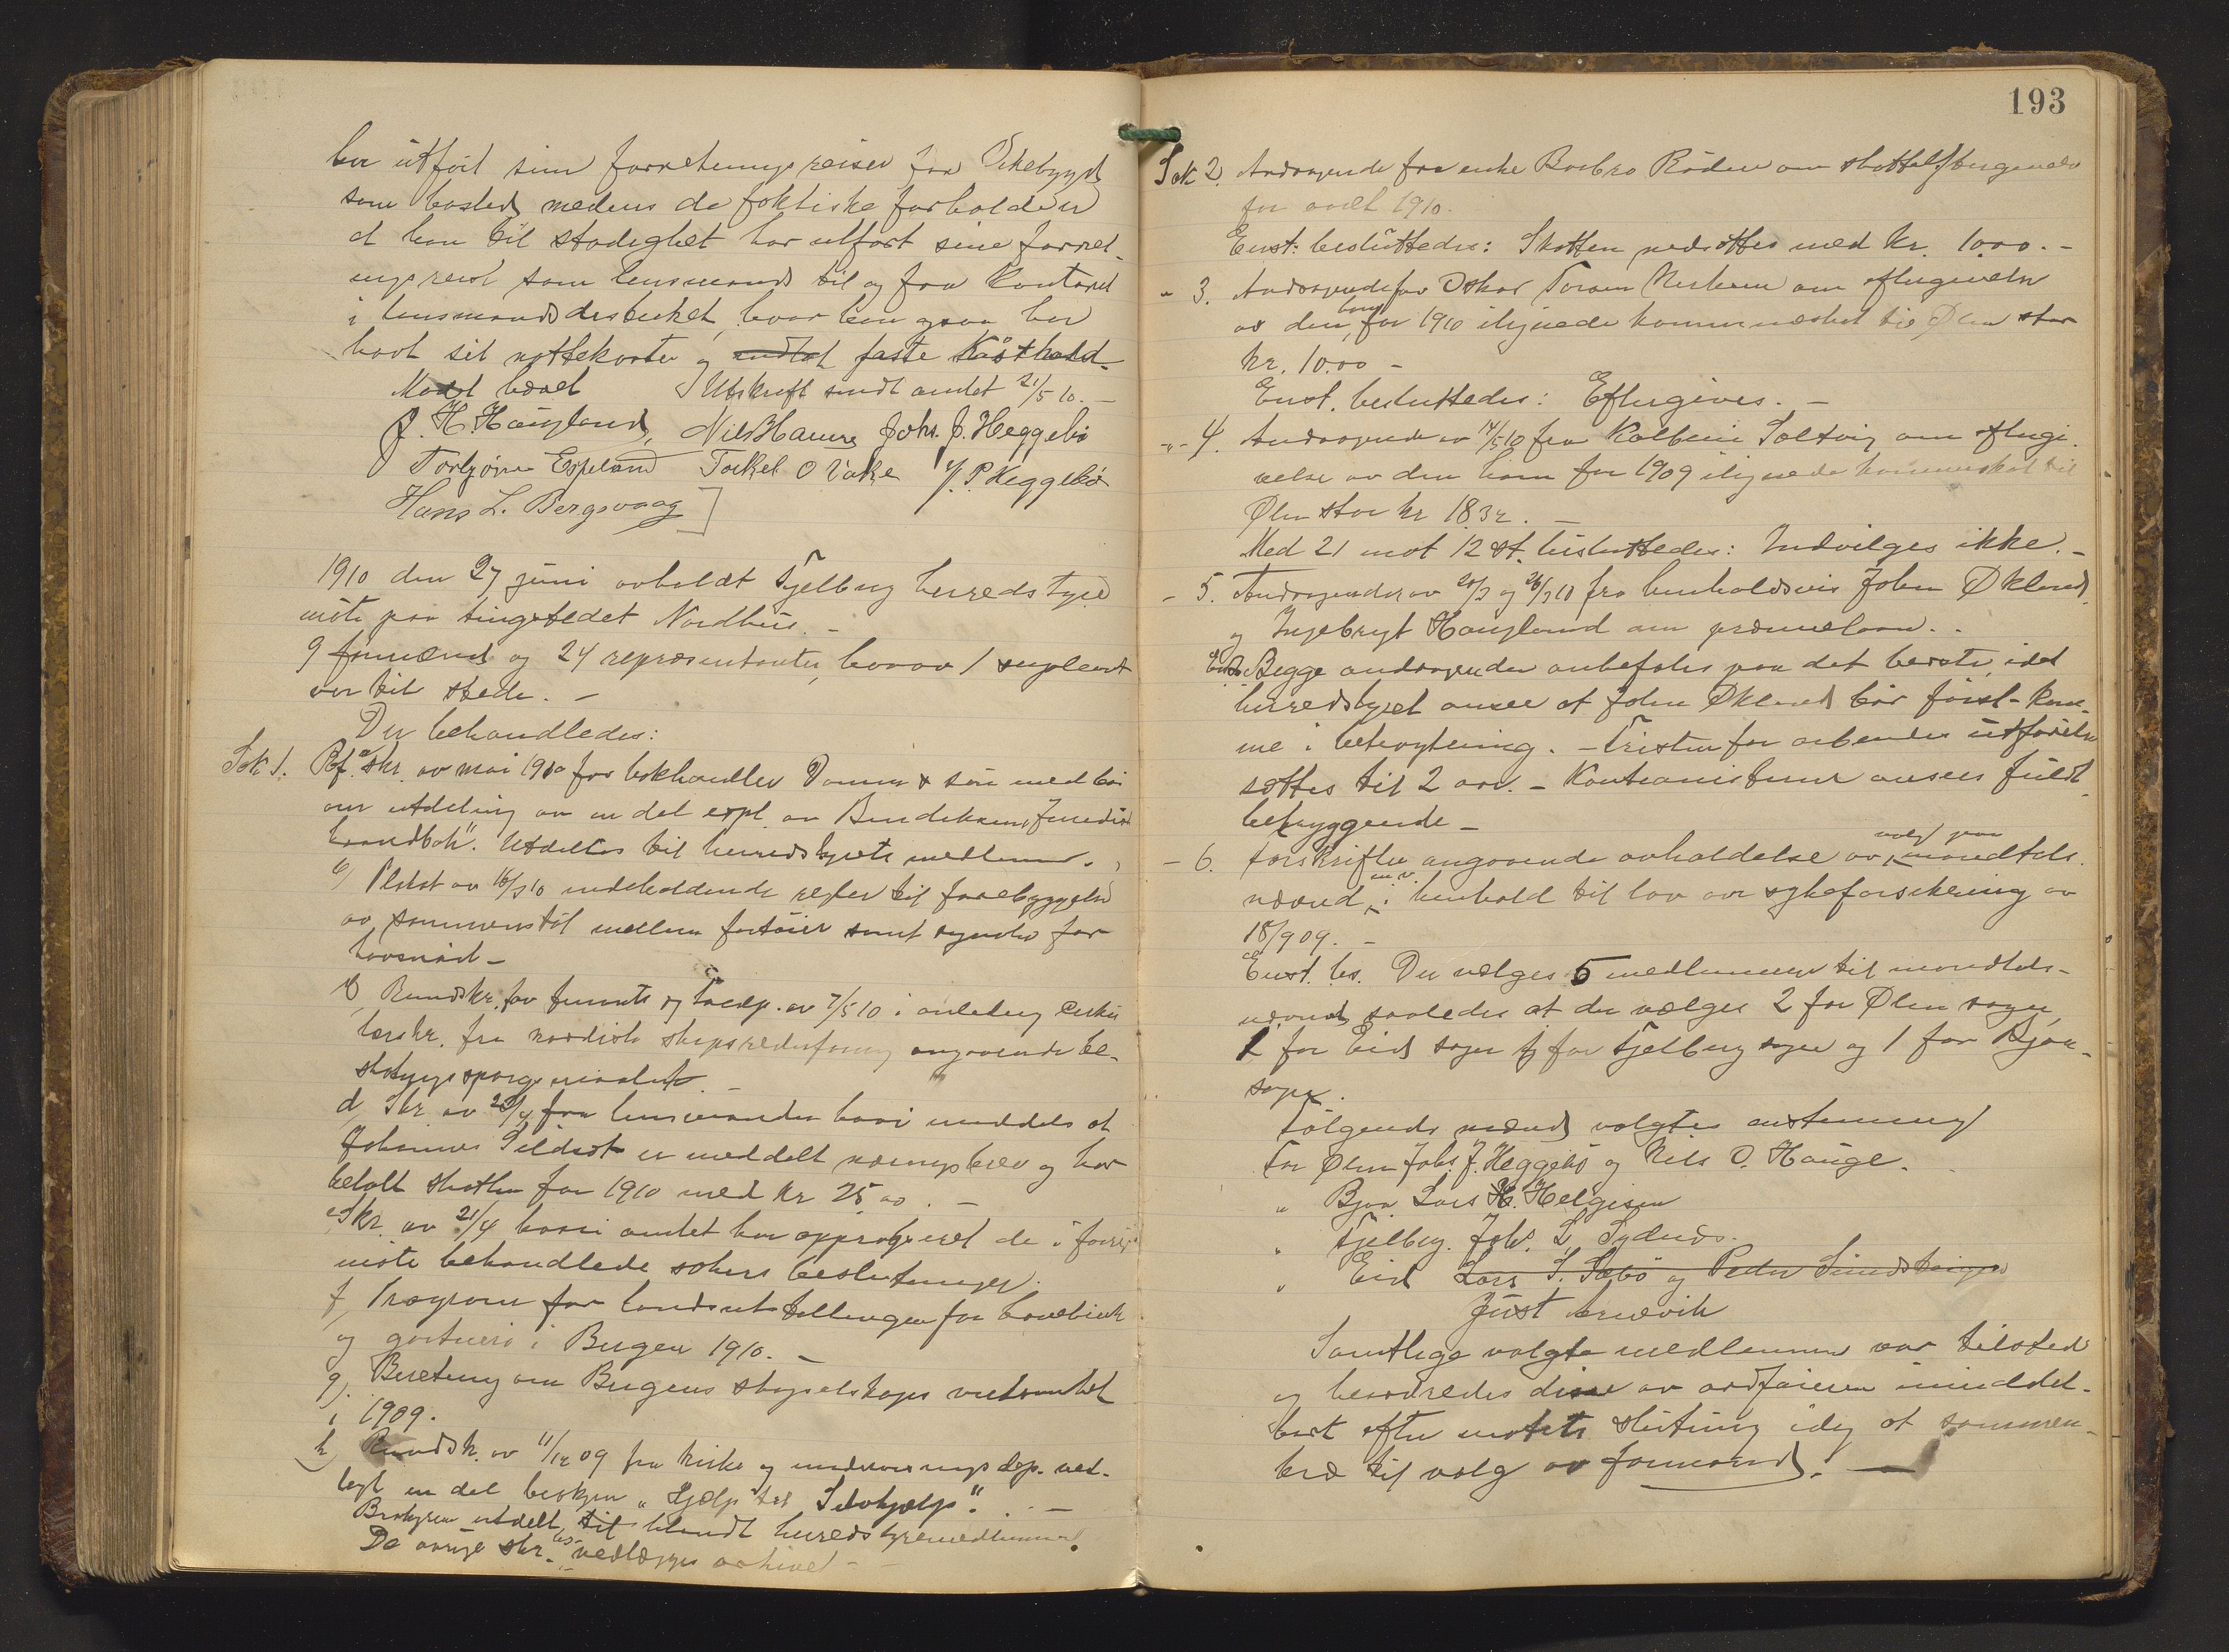 har utført sine forretningsreiser fra Ølebygd
som bosted, medens de faktiske forhold er
at han til stadighet har utført sine forret-
nings reiser som lensmand til og fra kontoret
i lensmandsdistriktet, hvor han ogsaa har
havt sit nattekvarter og endlot faste Kåsthold.
Møtet hævet Utskrift sendt amtet 21/5 10. —
J. H. Haugland, Nils Hamre Johs. J. Heggebø
Torbjørn Espeland Torkel O Vake P. Heggebø
Hans L. Bergsvaag
1910 den 27 juni avholdt Fjelberg herredstyre
møte paa tingstedet Nordhus. —
9 formænd og 24 repræsentanter, hvorav 1 suppleant
var til stede. —
Der behandledes:
Sak 1. Ref. a) Skr. av mai 1910 fra bokhandler Damm & søn med bøn
om utdeling av en del expl. av Bendiksens "Juridisk
haandbok". Utdeltes til herredstyrets medlemmer.
b) Plakat av 16/3 10 indeholdende regler til forebyggelse
av sammenstøt mellem fartøier samt signaler for
havsnød —
c) Rundskr. fra finants og tolddep. av 7/5 10 i anledning cirku
lærskr. fra nordisk skipsrederforening angaaende be-
skatnings spørgsmaalet. —
d, Skr. av 25/4 fra lensmanden hvori meddeles at
Johannes Sildest er meddelt næringsbrev og har
betalt skatten for 1910 med kr 25,00. —
e Skr. av 21/4 hvori amtet har approberet de i forrige
møte behandlede sakers beslutninger.
f, Program for landsutstillingen for havebruk
og gartneri i Bergen 1910. —
g). Beretning om Bergens skogselskaps virksomhet
i 1909.
h) Rundsk. av 11/12 09 fra kirke og undervisnings dep. ved-
lagt en del brosjyrer "Hjælp til Selvhjælp". —
Brosjyren utdelt til blandt herredstyremedlemmer.
De øvrige skr. bes. vedlægges arkivet —
193
Sak 2. Andragende fra enke Barbro Røden om skatteeftergivelse
for aaret 1910.
Enst: besluttedes: Skatten nedsættes med kr. 10.00. —
" 3. Andragende fra Oskar Toram Nerheim om eftergivelse
av den ham for 1910 ilignede kommuneskat til Ølen stor
kr. 10.00 —
Enst. besluttedes: Eftergives. —
" 4. Andragende av 14/5 10 fra Kolbein Saltvig om eftergi-
velse av den ham for 1909 ilignede kommuneskat til
Ølen stor kr 18.32. —
Med 21 mot 12 st. besluttedes: Indvilges ikke. —
— 5. Andragender av 20/3 og 26/3 10 fra henholdsvis John Økland
og Ingebrigt Haugland om præmielaan. .
Enst. Begge andragender anbefales paa det beste, idet
herredstyret anser at John Økland bør først kom-
me i betragtning. — Fristen for arbeidets utførelse
sættes til 2 aar. — Kautionisterne ansees fuldt
betryggende —
— 6. Forskrifter angaaende avholdelse av valg paa mandtals-
nævnd m.v. i henhold til lov om sykeforsikring av
18/9 09. —
Enst. bes. Der vælges 5 medlemmer til mandtals-
nævnd, saaledes at der vælges 2 for Ølen sogn,
1 for Eid sogn 1 for Fjelberg sogn og 1 for Bjoa
sogn.
Følgende mænd valgtes enstemmig
For Ølen Johs. J. Heggebø og Nils O. Hauge.
" Bjoa Lars H. Helgesen
" Fjelberg. Johs. L. Sydnes.
" Eid Lars T. Sæbø og Peder Sundstrigen
Just
Samtlige valgte medlemmer var tilstede
og beordredes disse av ordføreren umiddel-
bart efter møtets slutning idag at sammen-
træ til valg av formand. —